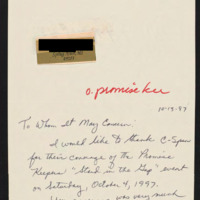 a. promise ker
10-13-97
To Whom It May Concern:
I would like to thank C-Span
for their coverage of the Promise
Keepers "Stand in the Gap" event
on Saturday, October 4, 1997.
was very much